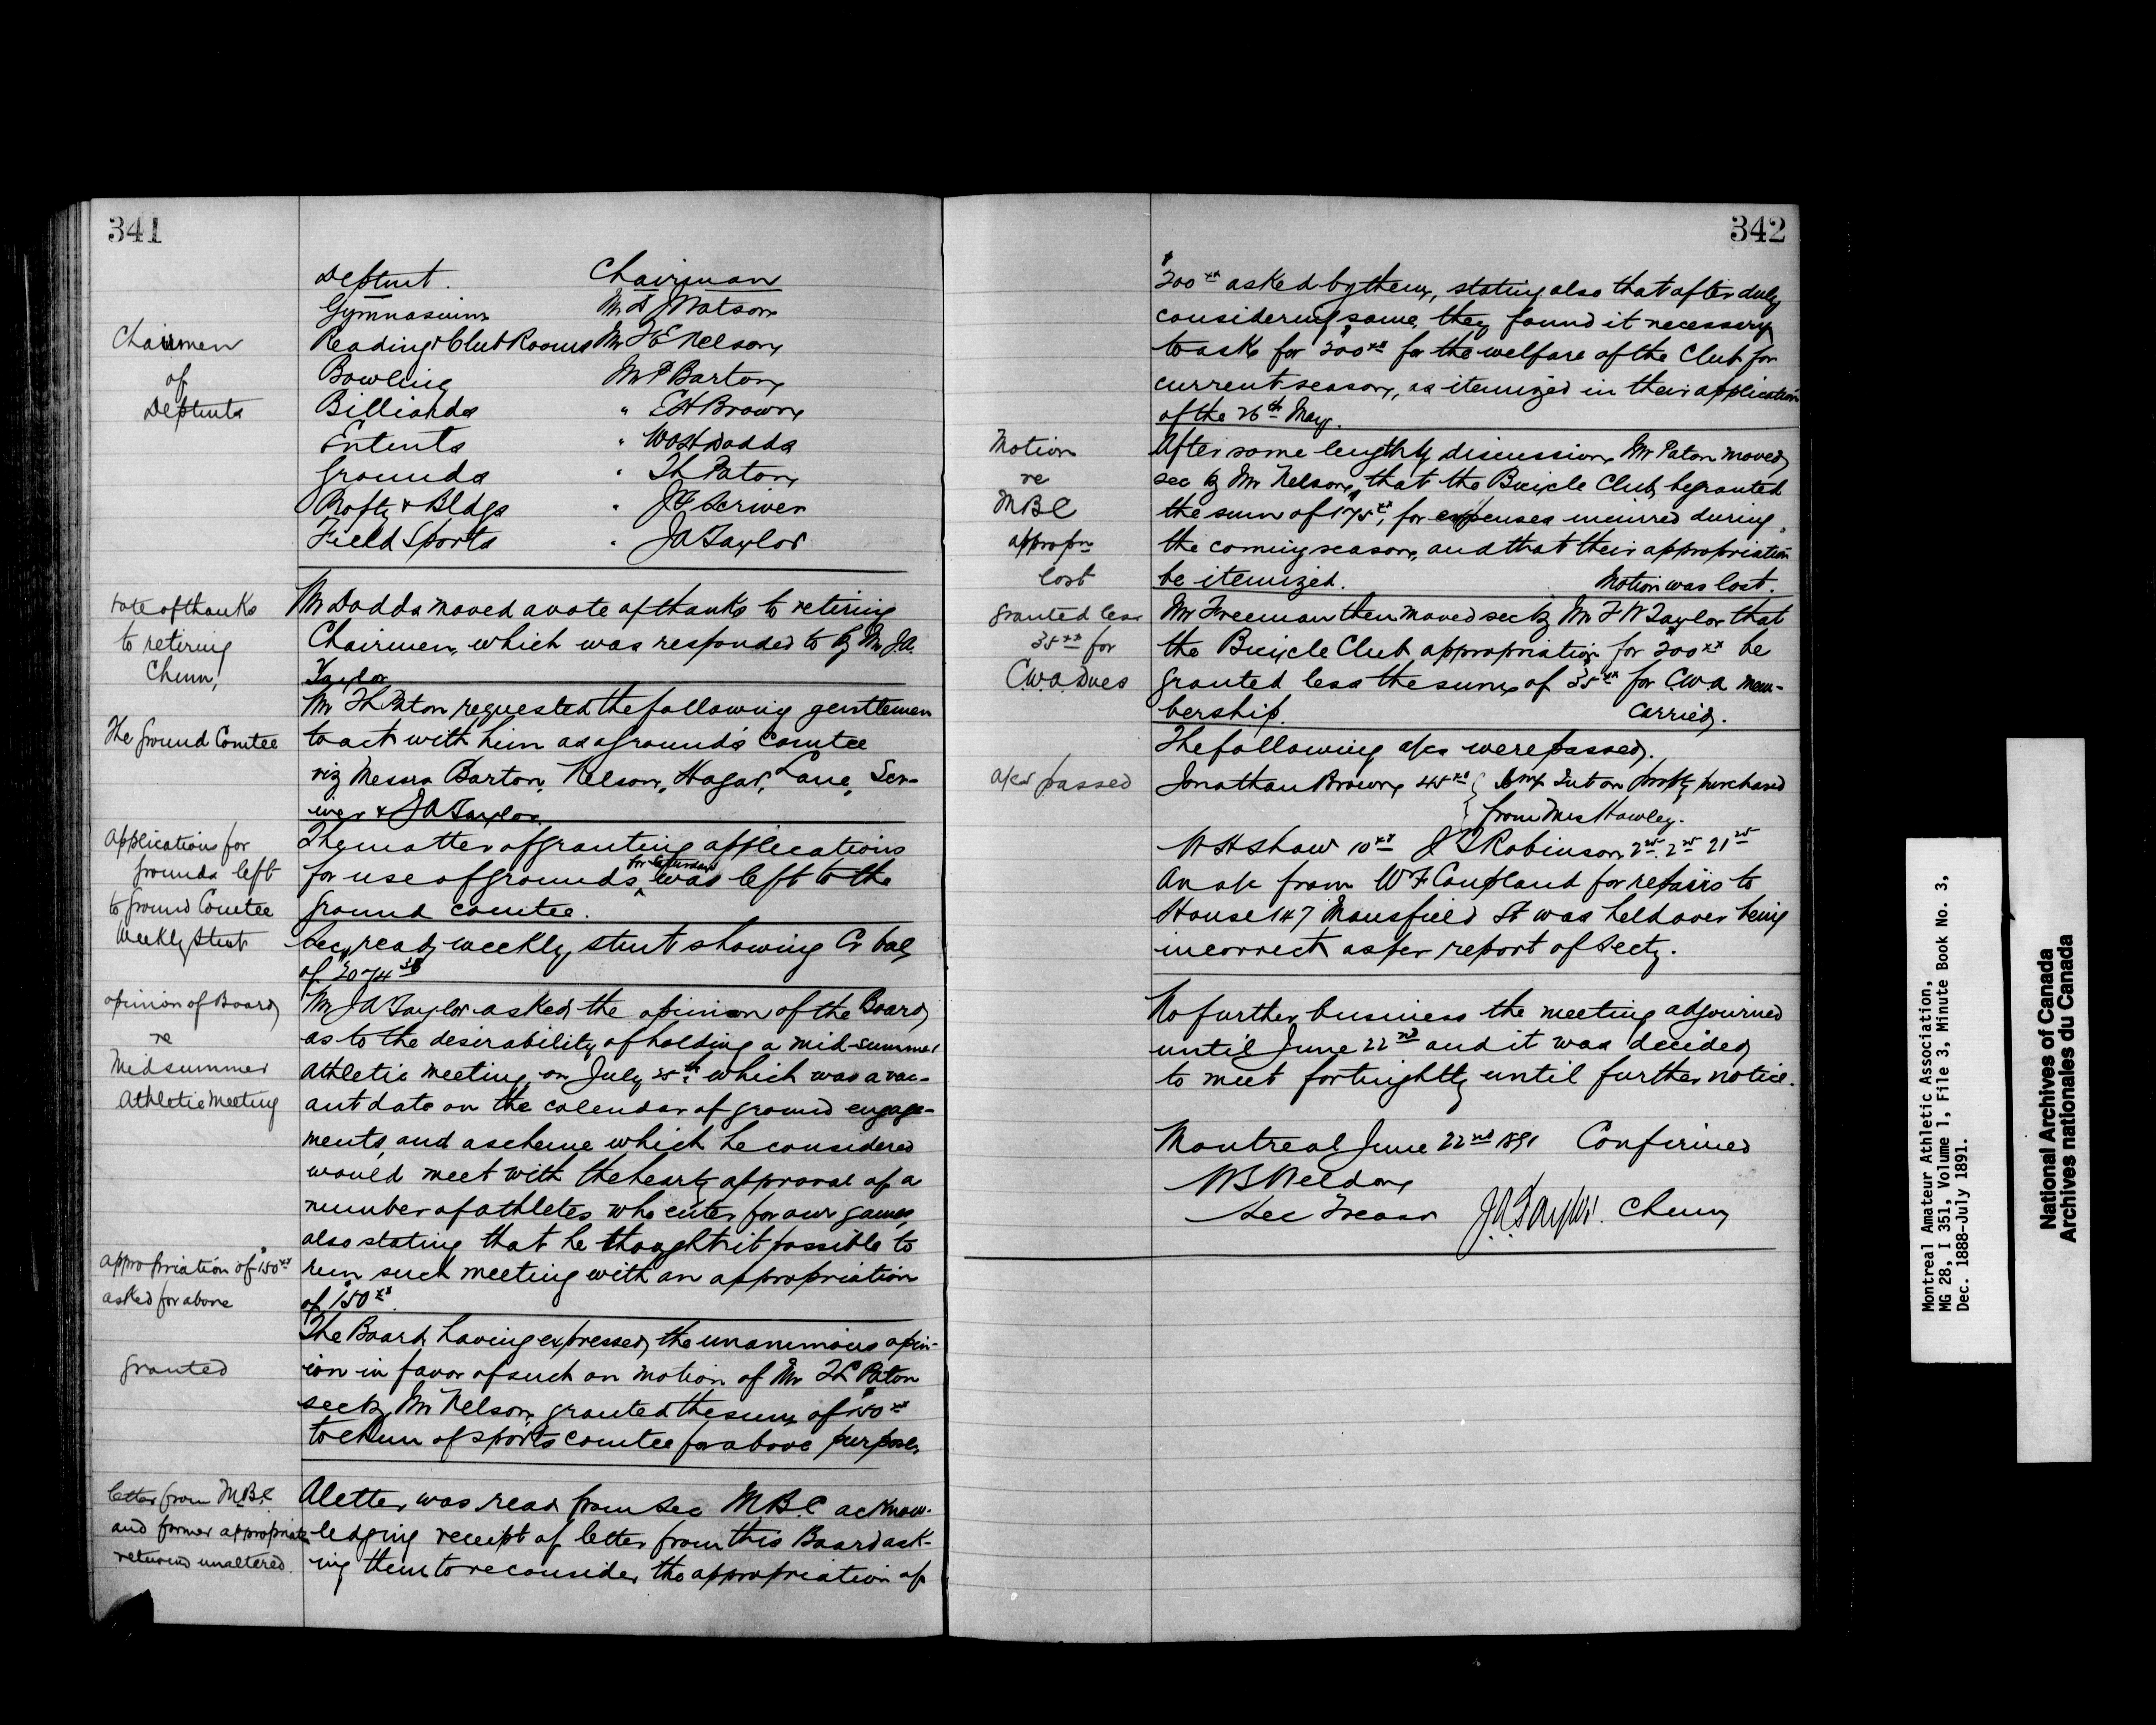 341
Deptmt. Chairman
Gymnasium Mr D J Watson
Chairmen Reading & Club Rooms Mr F E Nelson
of Bowling Mr P Barton
Deptmts Billiards " E H Brown
Entmts " W H Dodds
Grounds " T L Paton
Propty & Bldgs " J F Scriver
Field Sports " J A Taylor
vote of thanks Mr Dodds moved a vote of thanks to retiring
to retiring Chairmen, which was responded to by Mr J.A.
Chmn, Taylor
Mr T L Paton requested the following gentlemen
The Ground Comtee to act with him as a Grounds Comtee
viz Messrs Barton, Nelson, Hagar, Lane, Scr-
iver & J A Taylor.
Applications for The matter of granting applications
grounds left for use of grounds for Saturdays was left to the
to Ground Comtee ground comtee.
Weekly Stmt Secy read weekly stmt showing Cr bal
of
opinion of Board Mr J A Taylor asked the opinion of the Board
re as to the desirability of holding a mid-summer
Midsummer Athletic meeting on July 25th which was a vac-
Athletic Meeting ant date on the calendar of ground engage-
ments, and a scheme which he considered
would meet with the hearty approval of a
number of athletes who enter for our games,
also stating that he thought it possible to
appropriation of $150xx run such meeting with an appropriation
asked for above of $150xx.
The Board having expressed the unanimous opin-
granted ion in favor of such on motion of Mr T L Paton
sec by Mr Nelson granted the sum of $150xx
to chmn of sports comtee for above purpose.
letter from M.B.C. A letter was read from Sec M.B.C acknow-
and former appropriatn ledging receipt of letter from this Board ask-
returned unaltered. ing them to reconsider the appropriation of
342
$200xx asked by them, stating also that after duly
considering same, they found it necessary
to ask for $200xx for the welfare of the Club for
current season, as itemized in their application
of the 26th May.
Motion After some lengthly discussion, Mr Paton moved
re sec by Mr Nelson, that the Bicycle Club be granted
MBC the sum of $175xx, for expenses incurred during
appropn the coming season, and that their appropriation
lost be itemized. Motion was lost.
granted less Mr Freeman then moved sec by Mr F W Taylor that
35xx for the Bicycle Club appropriation for $200xx be
C.W.A. Dues granted less the sum of $35xx for C.W.A mem-
bership. Carried.
The following a/cs were passed.
a/cs passed Jonathan Brown 45xx { Int on propty purchased
from Mrs Hawley.
W H Shaw 10xx J L Robinson 2 25. 2 25 21 25
An a/c from W F Coupland for repairs to
House 147 Mansfield St was held over being
incorrect as per report of Secty.
No further business the meeting adjourned
until June 22nd and it was decided
to meet fortnightly until further notice.
Montreal June 22nd 1891 Confirmed
W S Weldon
Sec Treasr J.A. Taylor. Chmn
Montreal Amateur Athletic Association,
MG 28, I 351, Volume 1, File 3, Minute Book No. 3,
Dec. 1888-July 1891.
National Archives of Canada
Archives nationales du Canada